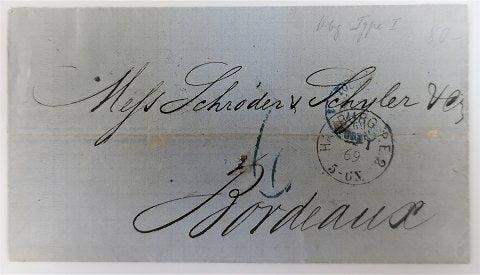 Hbg Type I
80-
Messrs Schröder & Schyler & Co
HAMBURG P.E.2
1
69
5-6N.
Bordeaux